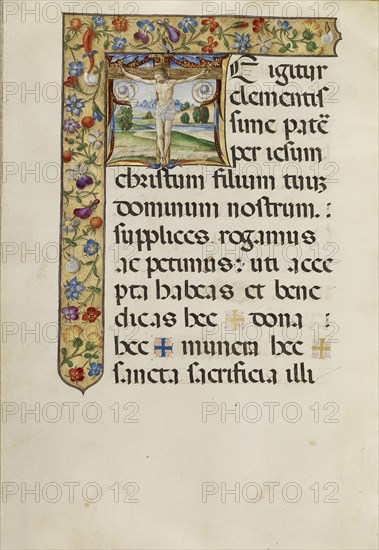 E igitur
clementis
sime patē
per iesum
christum filium tuuz
dominum nostrum.
supplices rogamus
ac petimus: uti acce
pta habeas et bene
dicas hec ✠ dona :
hec ✠ munera hec ✠
sancta sacrificia illi
PHOTO 12